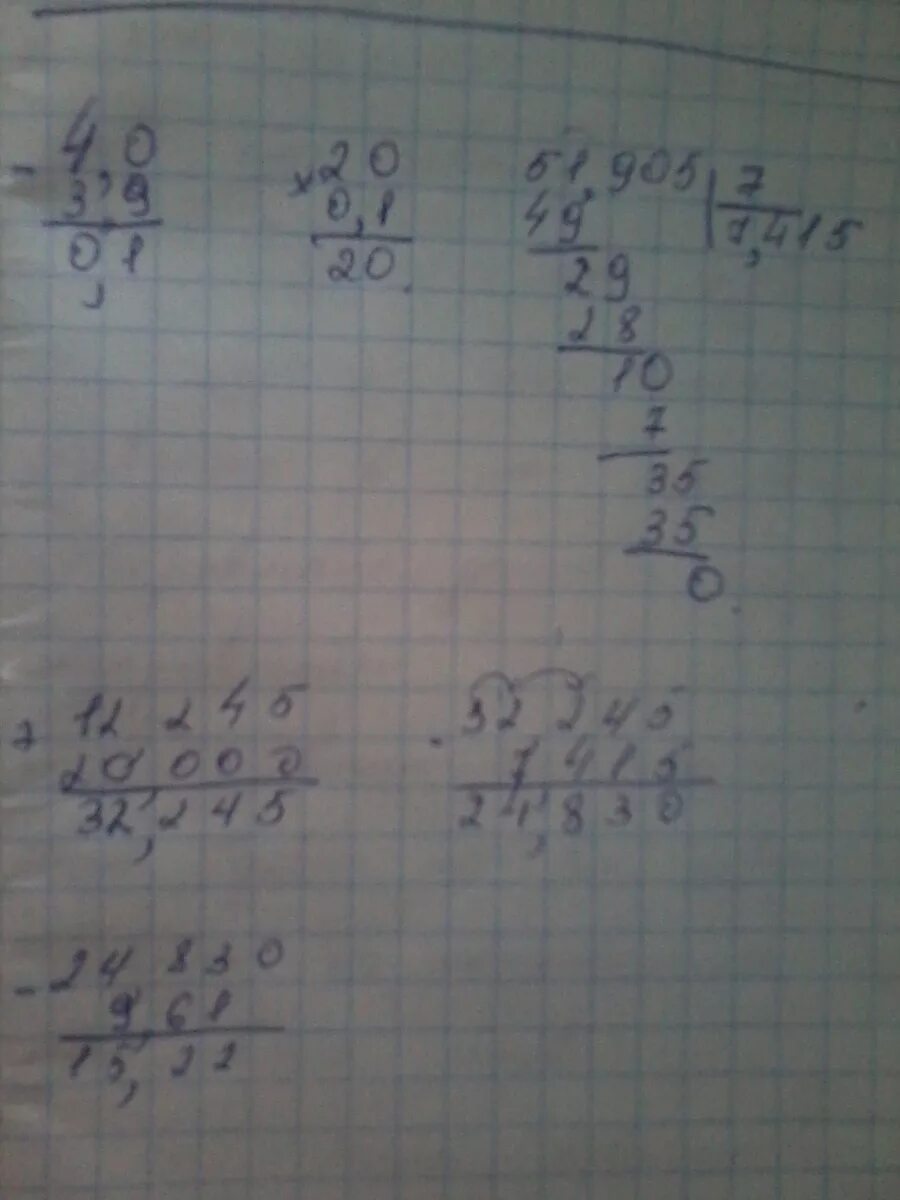 - 4,0
3,9
0,1
× 20
0,1
20.
51,905 | 7
49
7,415
29
28
10
7
35
35
0.
+ 12 245
20 000
32,245
- 32,245
7 415
24,830
- 24 830
9 61
15,22